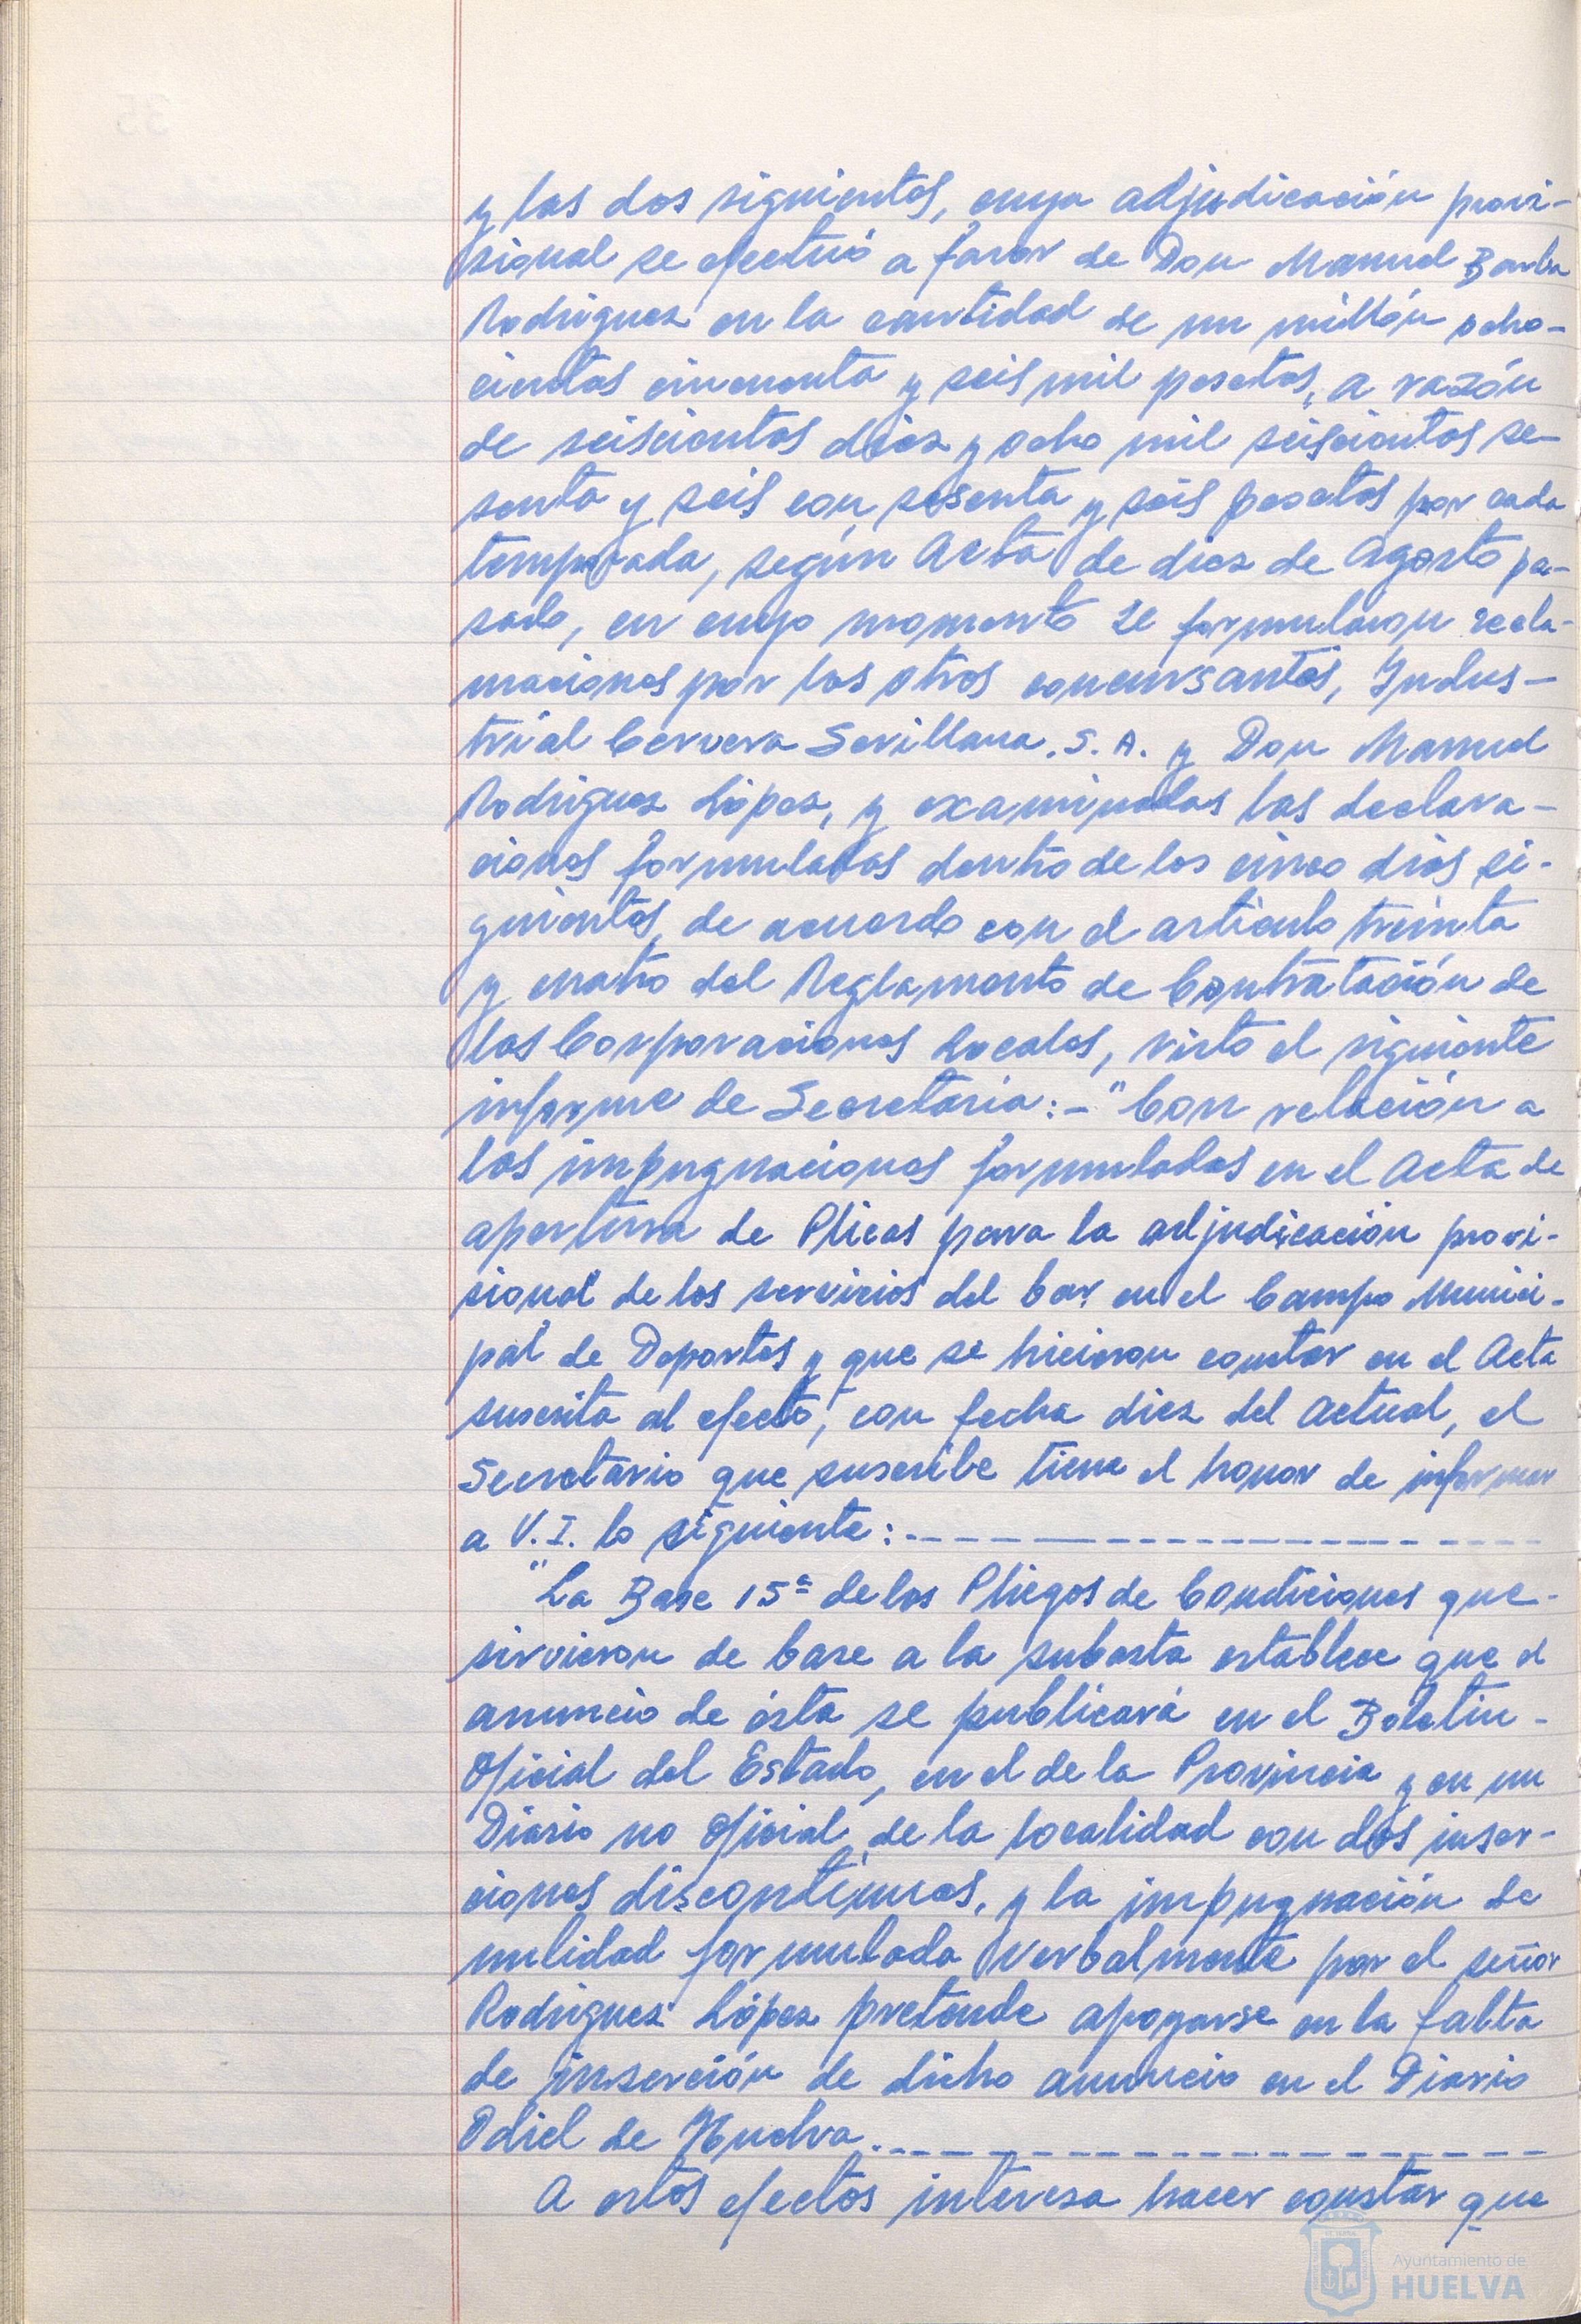 y las dos siguientes, cuya adjudicación provi-
sional se efectuó a favor de Don Manuel Barba
Rodríguez en la cantidad de un millón ocho-
cientas cincuenta y seis mil pesetas, a razón
de seiscientas diez y ocho mil seiscientas se-
senta y seis con sesenta y seis pesetas por cada
temporada, según Acta de diez de Agosto pa-
sado, en cuyo momento se formularon recla-
maciones por los otros concursantes, Indus-
trial Cervera Sevillana. S. A. y Don Manuel
Rodríguez López, y examinadas las declara-
ciones formuladas dentro de los cinco días si-
guientes, de acuerdo con el artículo treinta
y cuatro del Reglamento de Contratación de
las Corporaciones Locales, visto el siguiente
informe de Secretaría: - "Con relación a
las impugnaciones formuladas en el Acta de
apertura de Plicas para la adjudicación provi-
sional de los servicios del bar en el Campo Munici-
pal de Deportes y que se hicieron constar en el Acta
suscrita al efecto, con fecha diez del actual, el
Secretario que suscribe tiene el honor de informar
a V. I. lo siguiente:
"La Base 15ª de los Pliegos de Condiciones que-
sirvieron de base a la subasta establece que el
anuncio de ésta se publicará en el Boletín-
Oficial del Estado, en el de la Provincia y en un
Diario no oficial de la localidad con dos inser-
ciones discontinuas, y la impugnación de
nulidad formulada verbalmente por el señor
Rodríguez López pretende apoyarse en la falta
de inserción de dicho anuncio en el Diario
Odiel de Huelva.
A estos efectos interesa hacer constar que
Ayuntamiento de
HUELVA